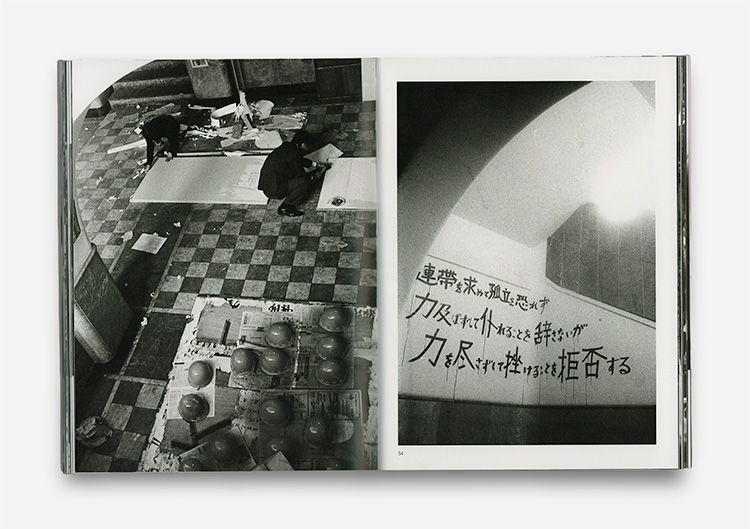 連帯を求めて孤立を恐れず
力及ばずして仆れることを辞さないが
力を尽さずして挫けることを拒否する
54